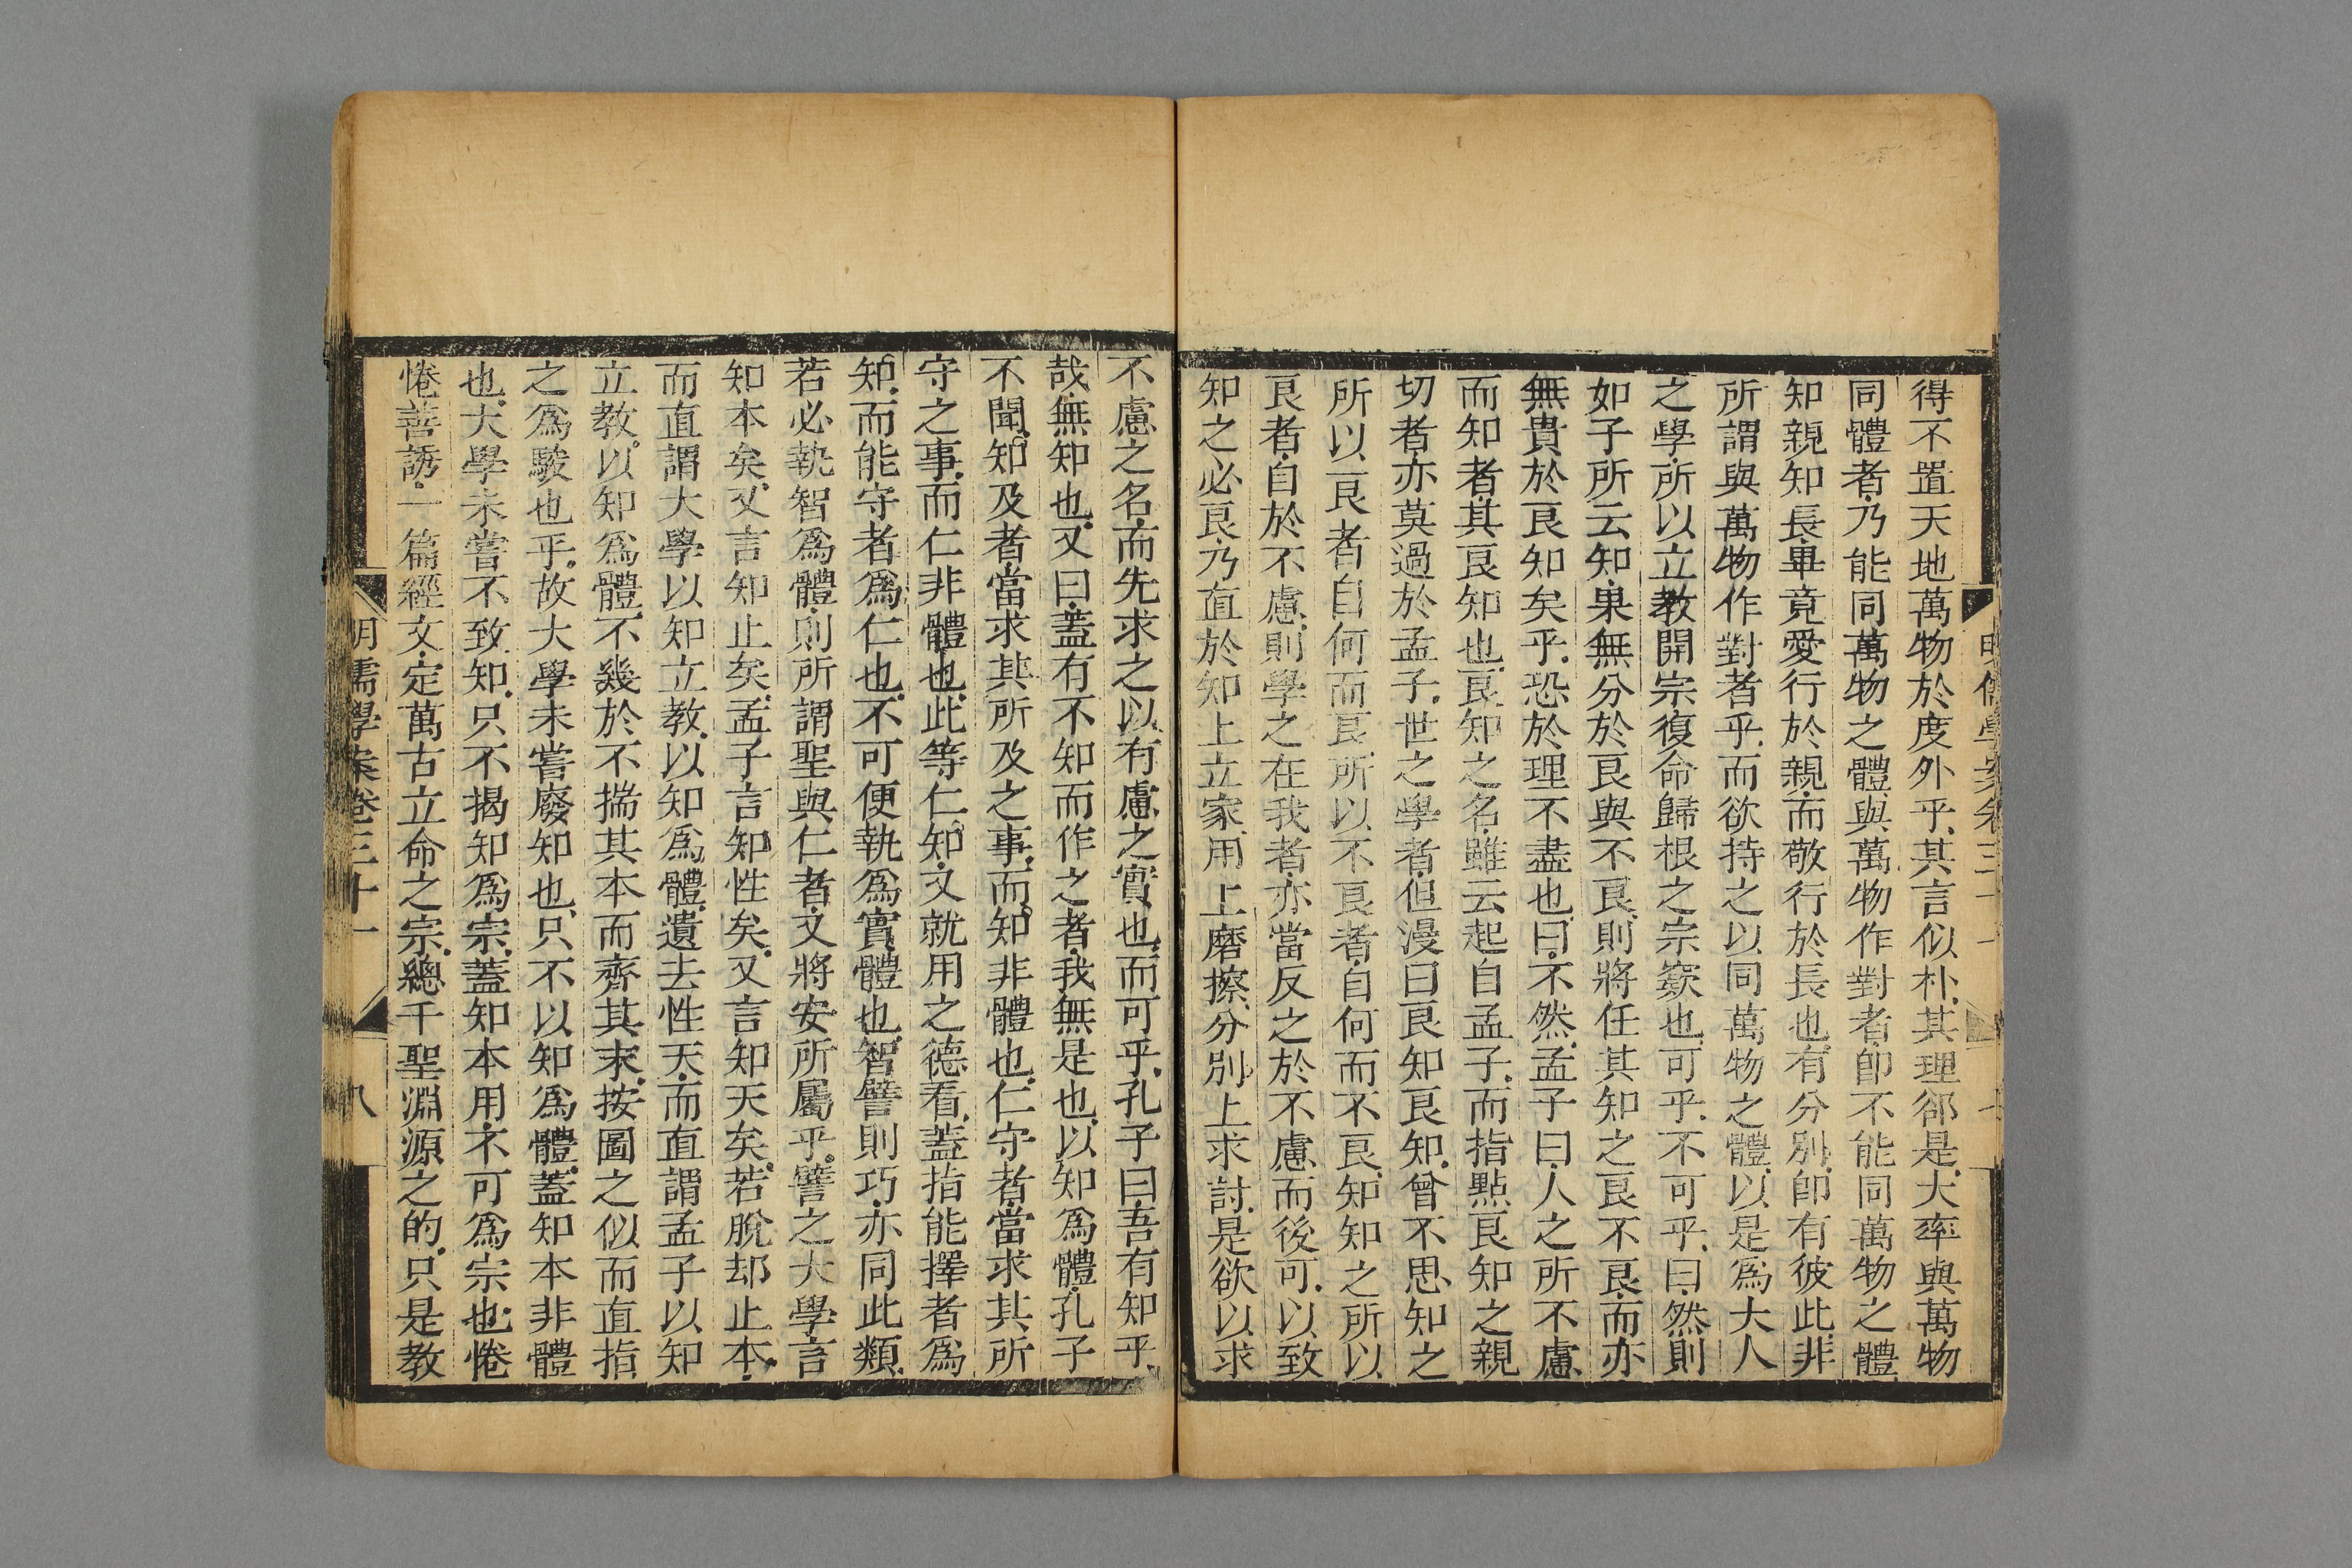 得不置天地萬物於度外乎其言似朴其理郤是大率與萬物
同體者乃能同萬物之體與萬物作對者卽不能同萬物之體
知親知長畢竟愛行於親而敬行於長也有分別卽有彼此非
所謂與萬物作對者乎而欲持之以同萬物之體以是爲大人
之學所以立教開宗復命歸根之宗竅也可乎不可乎曰然則
如子所云知果無分於良與不良則將任其知之良不良而亦
無貴於良知矣乎恐於理不盡也曰不然孟子曰人之所不慮
而知者其良知也良知之名雖云起自孟子而指點良知之親
切者亦莫過於孟子世之學者但漫曰良知良知曾不思知之
所以良者自何而良所以不良者自何而不良知知之所以
良者自於不慮則學之在我者亦當反之於不慮而後可以致
知之必良乃直於知上立家用上磨擦分別上求討是欲以求
不慮之名而先求之以有慮之實也而可乎孔子曰吾有知乎
哉無知也又曰蓋有不知而作之者我無是也以知爲體孔子
不聞知及者當求其所及之事而知非體也仁守者當求其所
守之事而仁非體也此等仁知又就用之德看蓋指能擇者爲
知而能守者爲仁也不可便執爲實體也智譬則巧亦同此類
若必執智爲體則所謂聖與仁者又將安所屬乎譬之大學言
知本矣又言知止矣孟子言知性矣又言知天矣若脫却止本
而直謂大學以知立教以知爲體遺去性天而直謂孟子以知
立教以知爲體不幾於不揣其本而齊其末按圖之似而直指
之爲駿也乎故大學未嘗廢知也只不以知爲體蓋知本非體
也大學未嘗不致知只不揭知爲宗蓋知本用不可爲宗也惓
惓善誘一篇經文定萬古立命之宗總千聖淵源之的只是教
明儒學案卷三十一
八